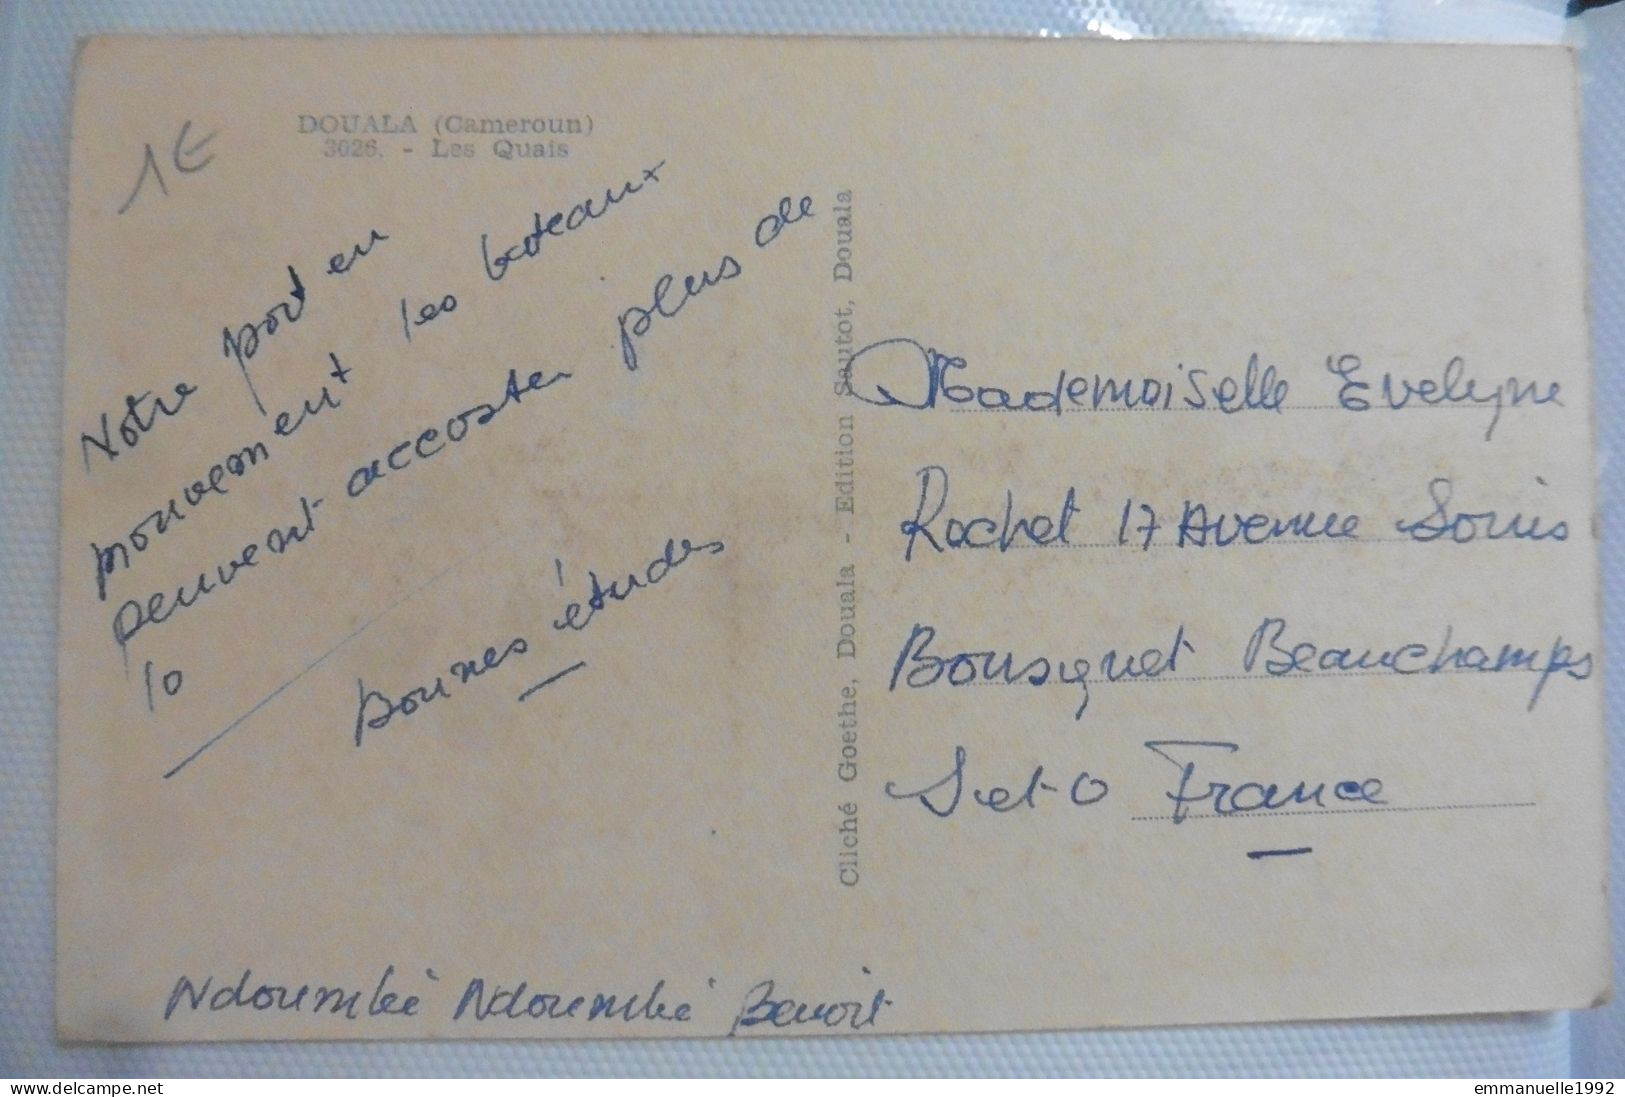 1€
DOUALA (Cameroun)
3026. - Les Quais
Notre port en
mouvement les bateaux
peuvent accoster plus de
10
Bonnes études
Ndoumbé Ndoumbé Benoit
Cliché Goethe, Douala - Edition Sautot, Douala
Mademoiselle Evelyne
Rochet 17 Avenue Louis
Bousquet Beauchamps
Set-O France
delcampe.net
emmanuelle1992